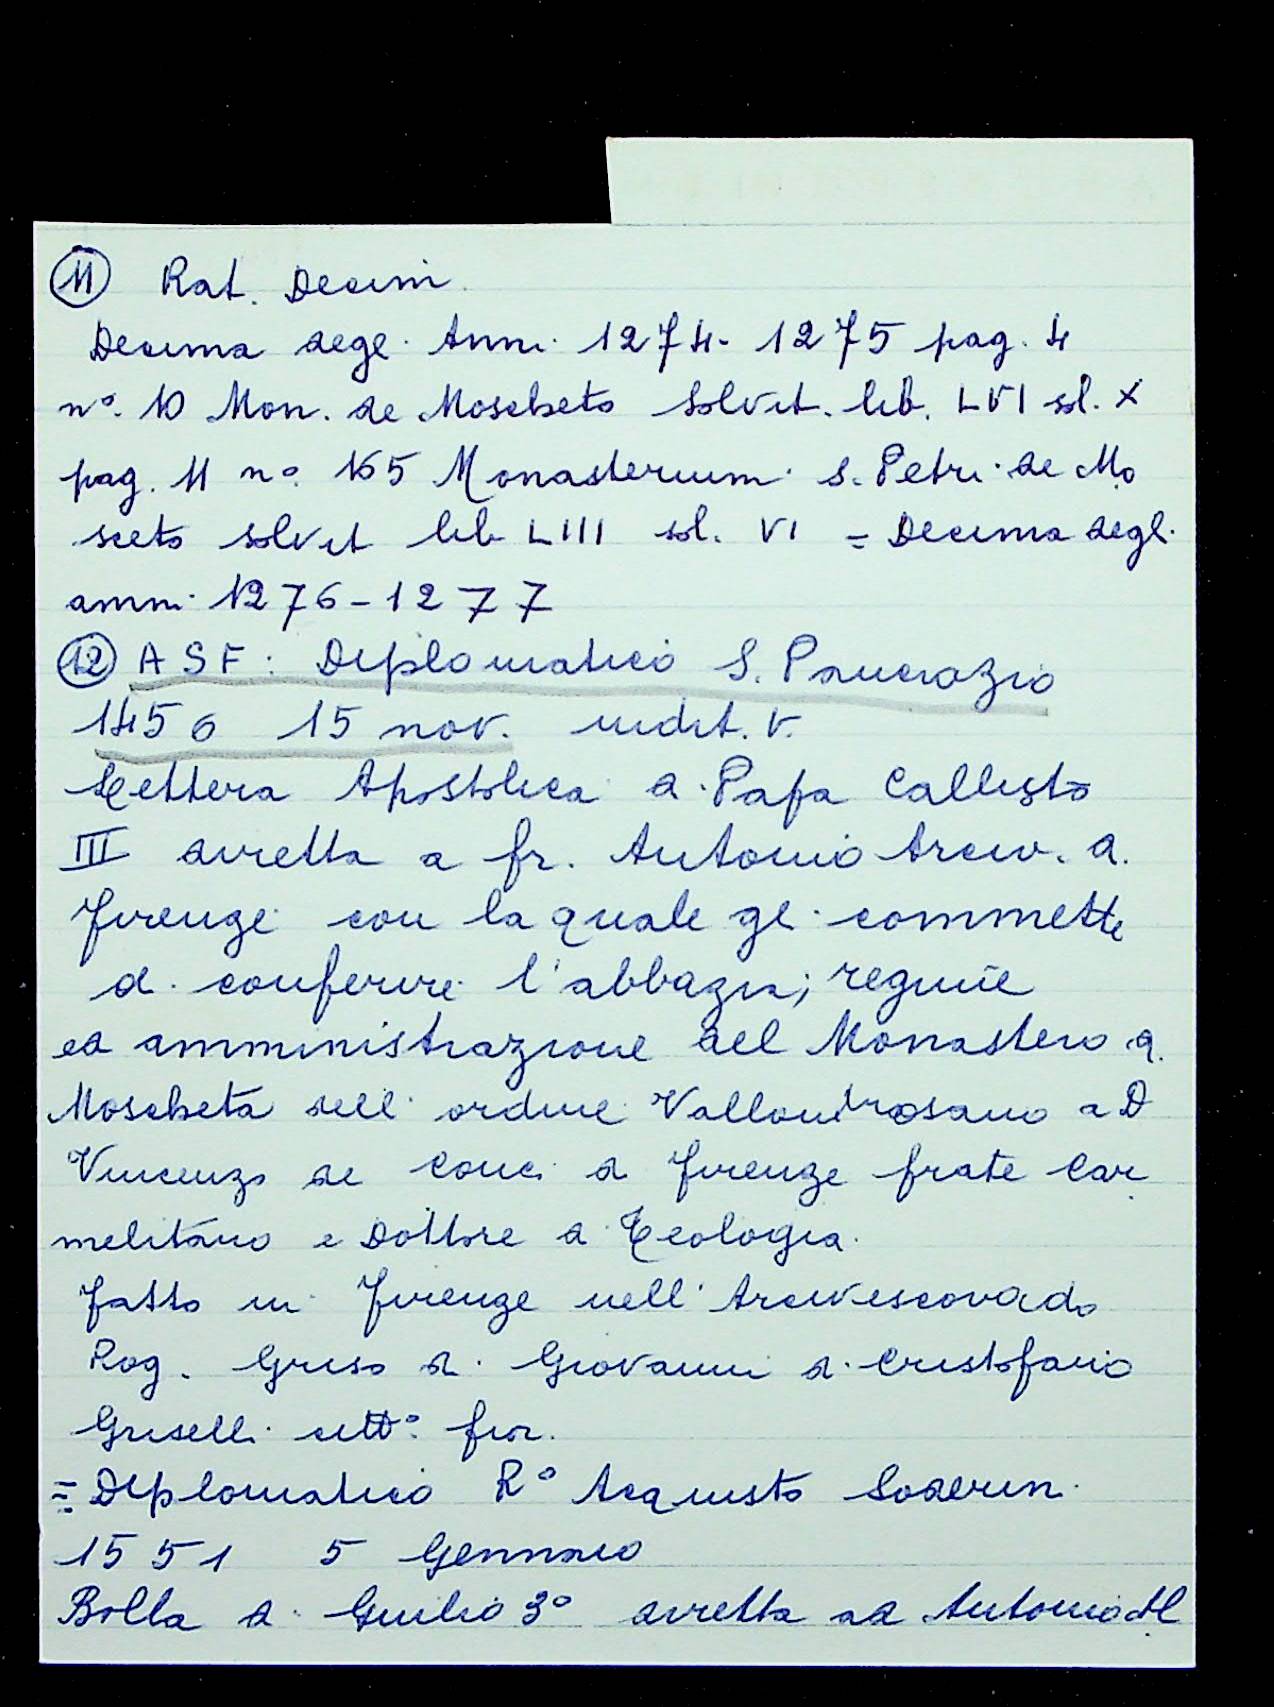 11 Rat. Decim.
Decima degli Anni 1274-1275 pag. 4
nº. 10 Mon. de Moscheto solvit. lib. LVI sol. X
pag. 11 nº. 165 Monasterium S. Petri de Mo
sceto solvit lib LIII sol. VI = Decima degli
anni 1276-1277
12 ASF: Diplomatico S. Pancrazio
1456 15 nov. indit. V.
Lettera Apostolica di Papa Callisto
III diretta a fr. Antonio Arciv. di
Firenze con la quale gli commette
di conferire l'abbazia, regime
ed amministrazione del Monastero di
Moscheta dell'ordine Vallombrosano a D
Vincenzo de Conci di Firenze frate Car
melitano e Dottore di Teologia.
Fatto in Firenze nell'Arcivescovado
Rog. Griso di Giovanni di Cristofano
Griselli citt.º fior.
= Diplomatico Rº Acquisto Soderini
1551 5 Gennaio
Bolla di Giulio 3º diretta ad Antonio